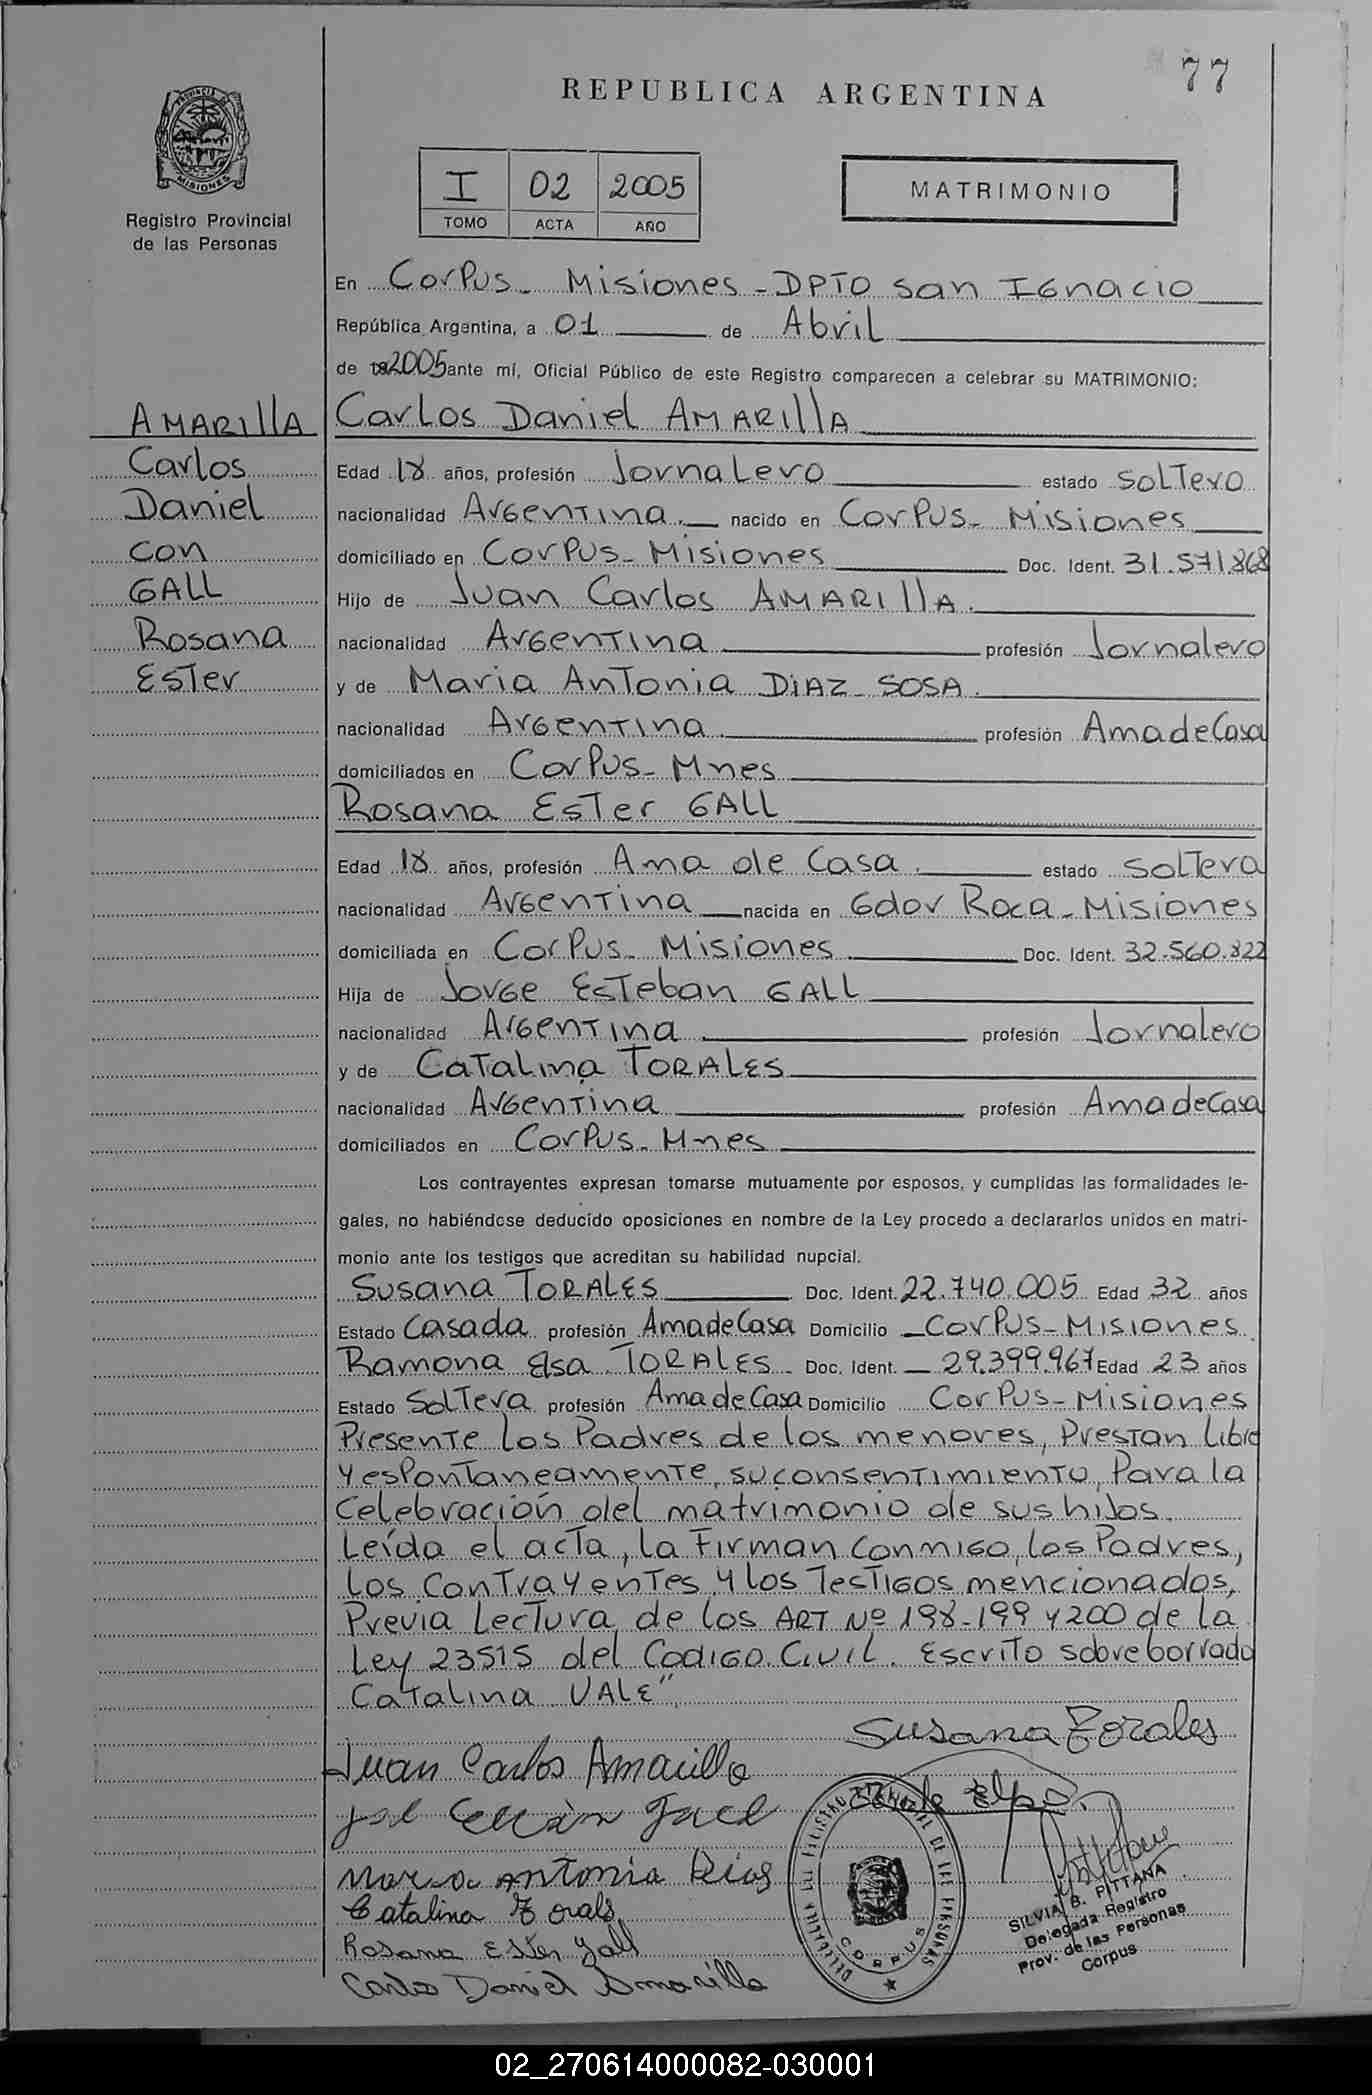 77
REPUBLICA ARGENTINA
PROVINCIA DE MISIONES
Registro Provincial
de las Personas
I 02 2005
TOMO ACTA AÑO
MATRIMONIO
En Corpus - Misiones - DPTO San Ignacio
República Argentina, a 01 de Abril
de 2005 ante mí, Oficial Público de este Registro comparecen a celebrar su MATRIMONIO:
AMARILLA
Carlos
Daniel
con
GALL
Rosana
Ester
Carlos Daniel AMARILLA
Edad 18 años, profesión Jornalero estado Soltero
nacionalidad Argentina. nacido en Corpus - Misiones
domiciliado en Corpus - Misiones Doc. Ident. 31.571.868
Hijo de Juan Carlos AMARILLA.
nacionalidad Argentina profesión Jornalero
y de Maria Antonia DIAZ - SOSA.
nacionalidad Argentina. profesión Ama de Casa
domiciliados en Corpus - Mnes
Rosana Ester GALL
Edad 18 años, profesión Ama de Casa. estado Soltera
nacionalidad Argentina nacida en Gdor Roca - Misiones
domiciliada en Corpus - Misiones Doc. Ident. 32.560.322
Hija de Jorge Esteban GALL
nacionalidad Argentina profesión Jornalero
y de Catalina TORALES
nacionalidad Argentina profesión Ama de Casa
domiciliados en Corpus - Mnes
Los contrayentes expresan tomarse mutuamente por esposos, y cumplidas las formalidades le-
gales, no habiéndose deducido oposiciones en nombre de la Ley procedo a declararlos unidos en matri-
monio ante los testigos que acreditan su habilidad nupcial.
Susana TORALES Doc. Ident. 22.740.005 Edad 32 años
Estado Casada profesión Ama de Casa Domicilio Corpus - Misiones.
Ramona Elsa TORALES Doc. Ident. 29.399.967 Edad 23 años
Estado Soltera profesión Ama de Casa Domicilio Corpus - Misiones
Presente los Padres de los menores, Prestan Libre
y espontaneamente, su consentimiento, Para la
celebración del matrimonio de sus hijos.
Leída el acta, la Firman conmigo, los Padres,
los Contrayentes y los Testigos mencionados,
Previa Lectura de los ART Nº 198-199 y 200 de la
Ley 23515 del Codigo Civil. Escrito sobre borrado
Catalina VALE"
Susana Torales
Juan Carlos Amarilla
Maria Antonia Dias
Catalina Torales
Rosana Ester Gall
Carlos Daniel Amarilla
CORPUS
SILVIA B. PITTANA
Delegada Registro
Prov. de las Personas
Corpus
02_270614000082-030001